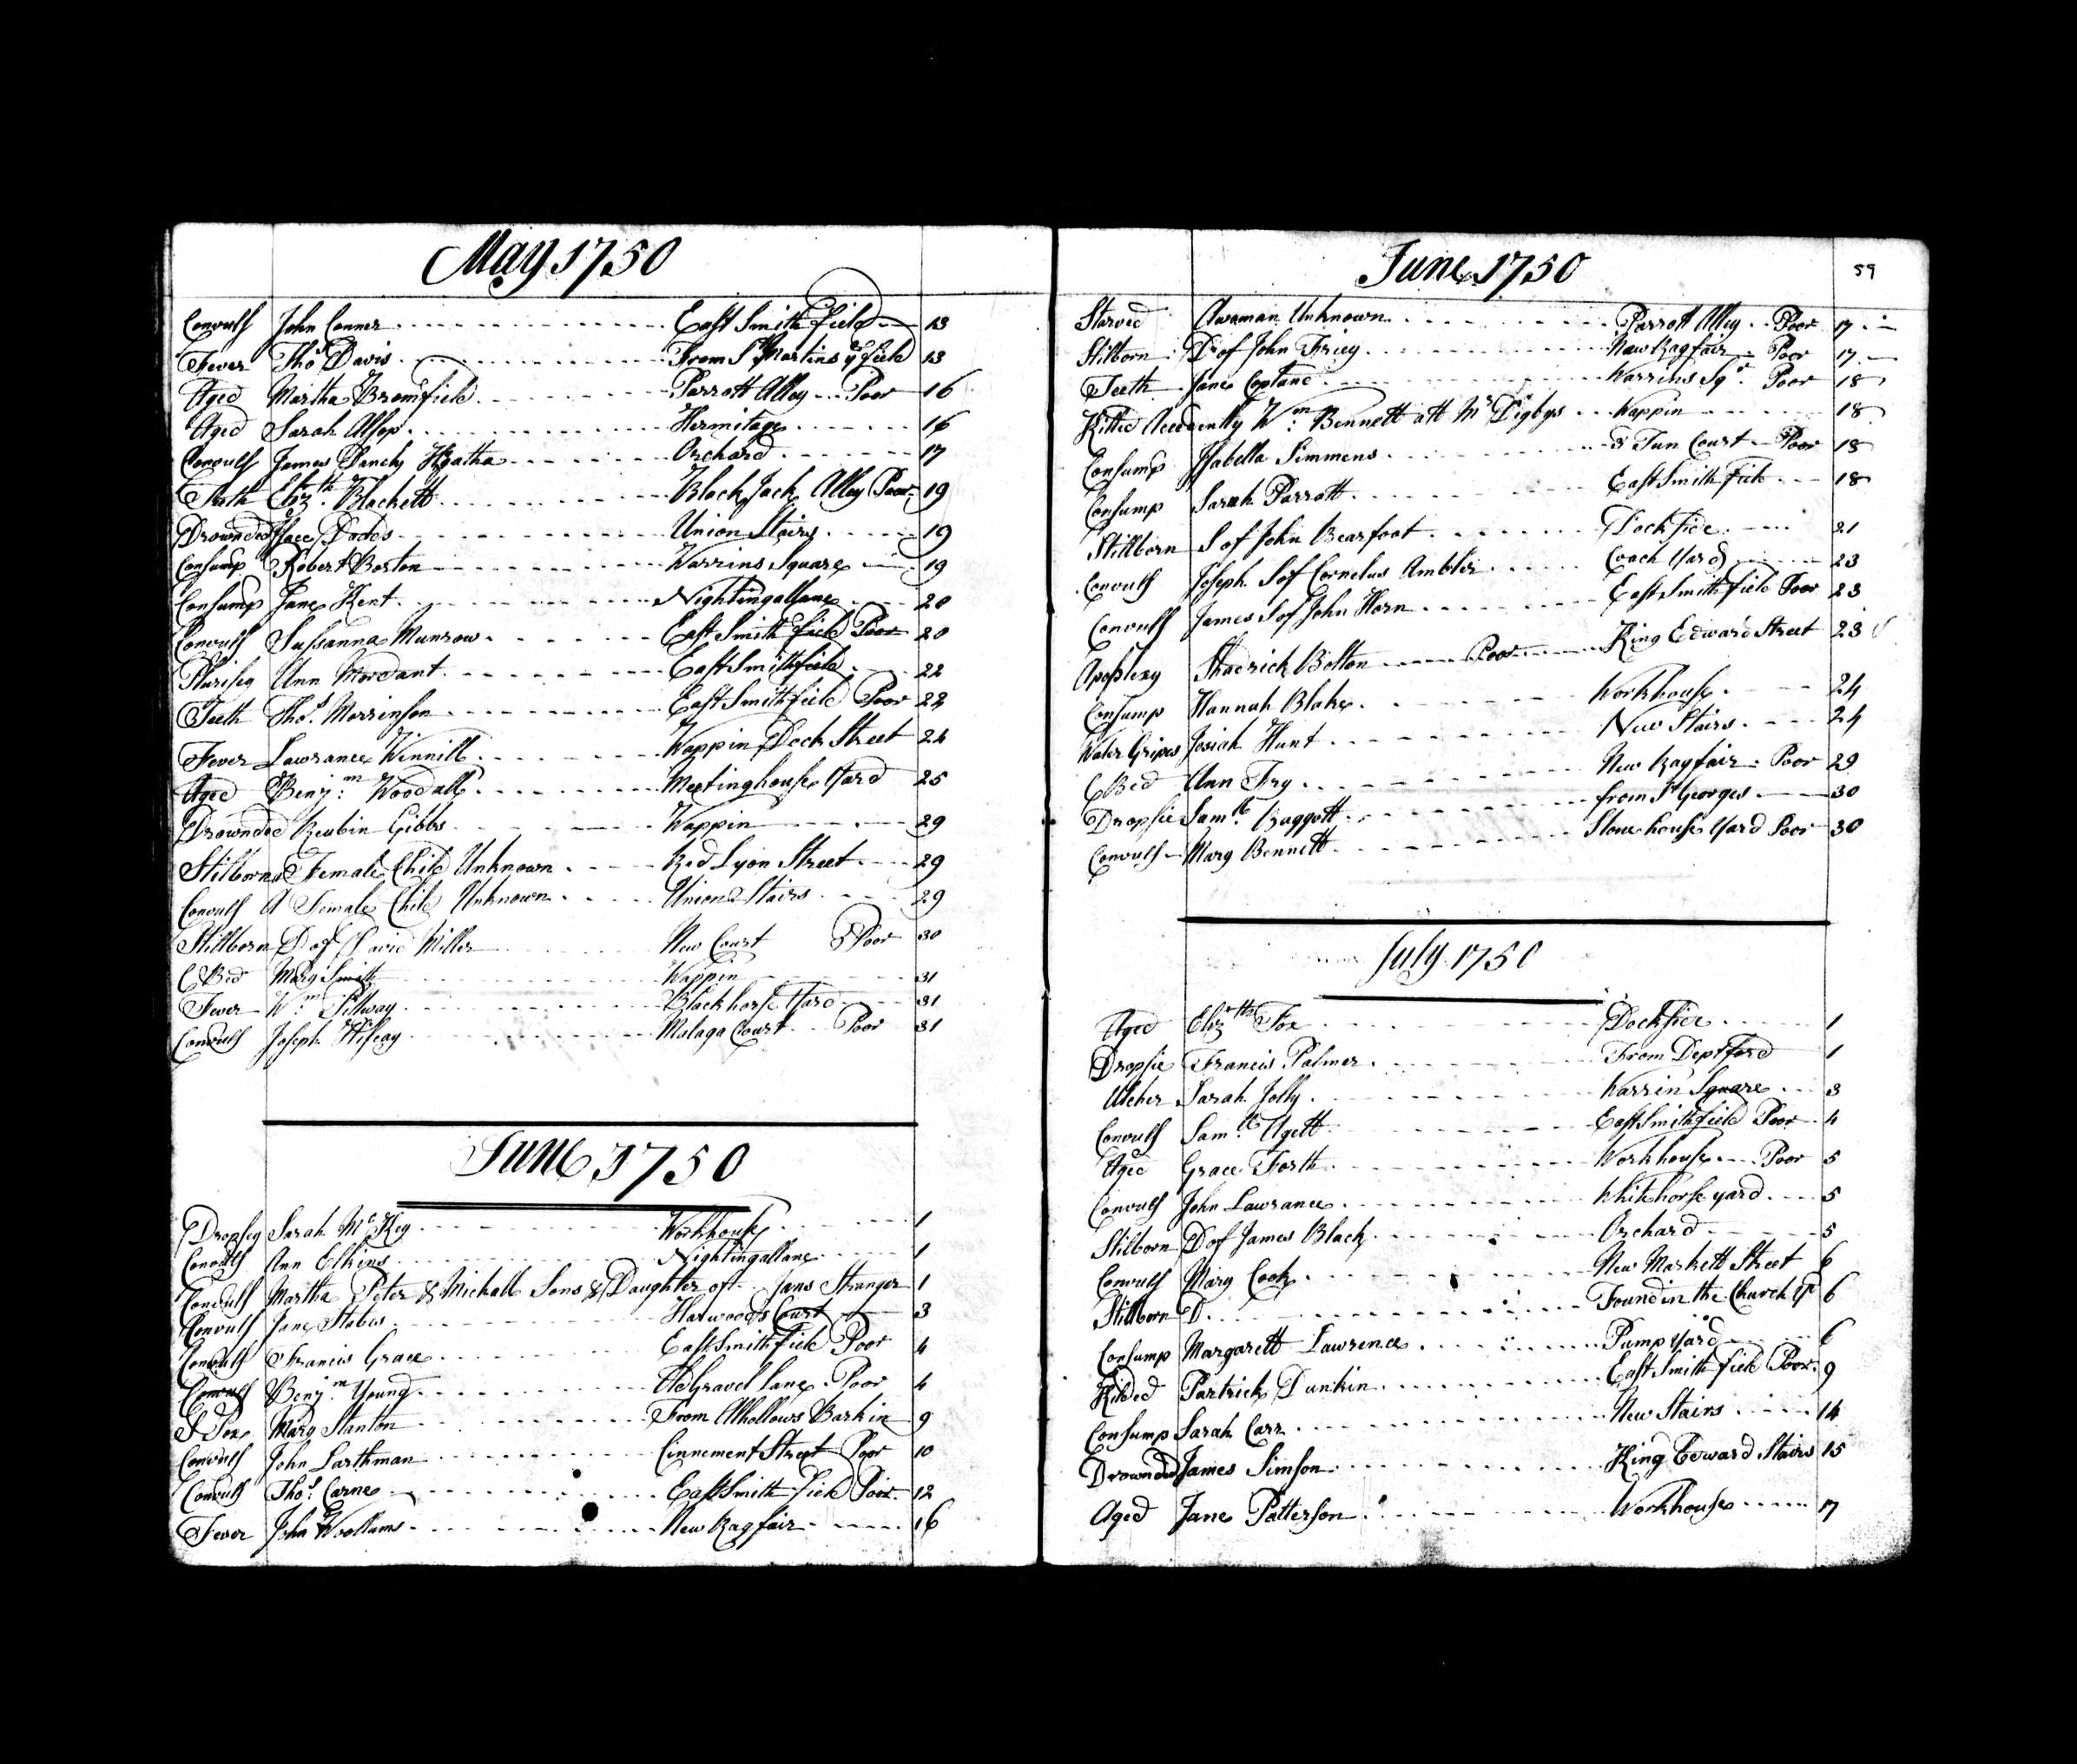 May 1750
Convuls John Conner East Smithfield 13
Fever Thos Davis From St Martins ye field 13
Aged Martha Bromfield Parrott Alley Poor 16
Aged Sarah Alsop Hermitage 16
Convuls James Heatha Orchard 17
Teeth Elizth Blackett Black Jack Alley Poor 19
Drownded Dodds Union Stairs 19
Consump Robert Boston Warrins Square 19
Consump Jane Kent Nightingallane 20
Convuls Sussanna Munrow East Smithfield Poor 20
Plurisey Ann Mordant East Smithfield 22
Teeth Thos Morrinson East Smithfield Poor 22
Fever Lawrance Winnill Wappin Dock Street 24
Aged Benjm Woodall Meetinghouse Yard 25
Drownded Reubin Gibbs Wappin 29
Stilborn a Female Child Unknown Red Lyon Street 29
Convuls A Female Child Unknown Union Stairs 29
Stillborn D of David Miller New Court Poor 30
C Bed Mary Smith Wappin 31
Fever Wm Pillway Blackhorse Yard 31
Convuls Joseph Malaga Court Poor 31
June 1750
Dropsey Sarah McKey Workhouse 1
Convuls Ann Elkins Nightingallane 1
Convuls Martha Peter & Michall Sons & Daughter of Jams Stranger 1
Convuls Jane Stabes Harwoods Court 3
Convuls Francis Grace East Smithfield Poor 4
Convuls Benjm Young Old Gravel Lane Poor 4
S Pox Mary Stanton From Alhollows Barkin 9
Convuls John Larthman Cinnement Street Poor 10
Convuls Thos Carne East Smithfield Poor 12
Fever John Woollams New Ragfair 16
June 1750 59
Starved A woman Unknown Parrott Alley Poor 17
Stilborn D of John Friey New Ragfair Poor 17
Teeth Jane Coptand Warrins Sqr Poor 18
Killed Accedently Wm Bennett att Mr Digbys Wappin 18
Consump Isabella Simmens 3 Tun Court Poor 18
Consump Sarah Parrott East Smithfield 18
Stillborn S of John Bearfoot Dockside 21
Convuls Joseph S of Cornelus Ambler Coach Yard 23
Convuls James S of John Horn East Smithfield Poor 23
Apoplexy Shadrick Bolton Poor King Edward Street 23
Consump Hannah Blake Workhouse 24
Water Gripes Josiah Hunt New Stairs 24
C Bed Ann Fry New Ragfair Poor 29
Dropsie Saml Baggott from St Georges 30
Convuls Mary Bennett Stone house Yard Poor 30
July 1750
Aged Elizth Fox Dockside 1
Dropsie Francis Palmer From Deptford 1
Ulcher Sarah Jolly Warrin Square 3
Convuls Saml Agett East Smithfield Poor 4
Aged Grace Forth Workhouse Poor 5
Convuls John Lawrance Whitehorse yard 5
Stilborn D of James Black Orchard 5
Convuls Mary Cook New Markett Street 6
Stillborn D Found in the Church Yd 6
Consump Margarett Lawrence Pump Yard 6
Kilded Partrick Dunkin East Smithfield Poor 9
Consump Sarah Carr New Stairs 14
Drownded James Simson King Edward Stairs 15
Aged Jane Patterson Workhouse 17